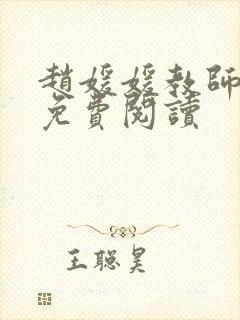 趙媛媛教師
免費閱讀
王聰昊